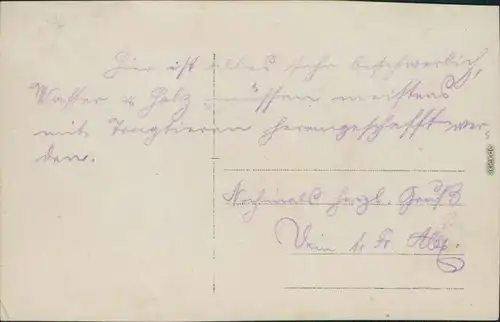 Hier ist alles sehr beschwerlich,
Wasser u Holz müssen meistens
mit Tragtieren herangeschafft wer-
den.
Nochmals herzl. Gruß
Dein